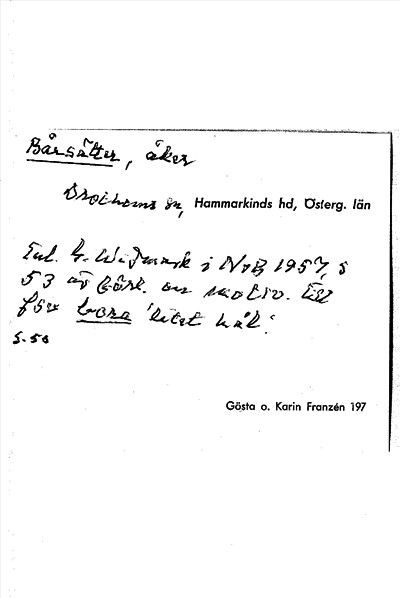 Bårsätter, åker
Drothems sn, Hammarkinds hd, Österg. län
Enl. G. Widmark i NoB 1957, s
53 är förl. en motiv. till
för bora 'litet hål'.
S. 50
Gösta o. Karin Franzén 197